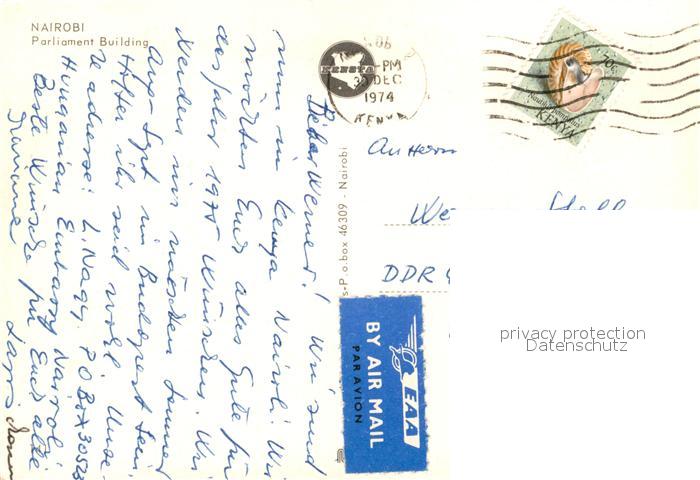 NAIROBI
Parliament Building
Lieber Werner! Wir sind
nun in Kenya Nairobi. Wir
möchten Euch alles Gute für
das Jahr 1975 wünschen. Wir
werden im nächsten Sommer
Aug-Sept in Budapest sein.
Hoffen ihr seid wohl. Unse-
re adresse: L. Nagy. P.O.Box 30523
Hungarian Embassy Nairobi
Beste Wünsche für Euch alle
s-P.o.box 46309. Nairobi
KENYA
PM
DEC
1974
KENYA
70c
KENYA
An Herrn
We
DDR
BY AIR MAIL
PAR AVION
EAA
privacy protection
Datenschutz